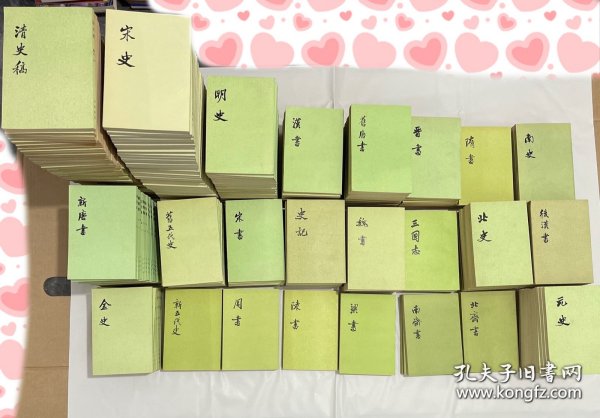 清史稿
宋史
明史
漢書
舊唐書
晉書
隋書
南史
新唐書
舊五代史
宋書
史記
魏書
三國志
北史
後漢書
金史
新五代史
周書
陳書
梁書
南齊書
北齊書
元史
孔夫子旧书网
www.kongfz.com